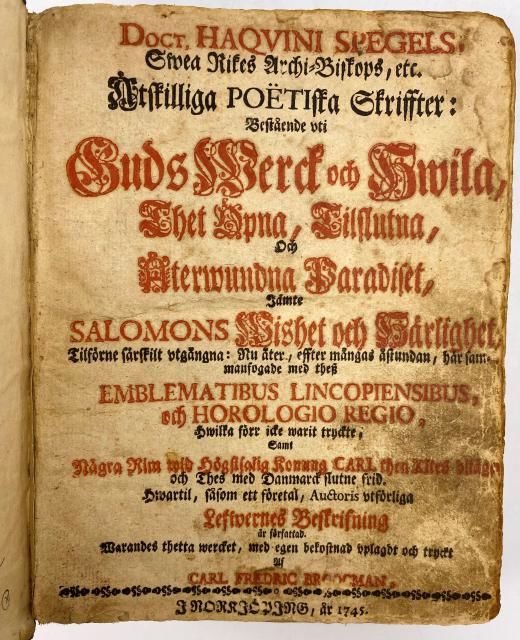 DOCT. HAQVINI SPEGELS,
Swea Rikes Archi-Biskops, etc.
Åtskilliga POËTIska Skriffter:
Bestående vti
Guds Werck och Hwila,
Thet Öpna, Tilslutna,
Och
Återwundna Paradiset,
Jämte
SALOMONS Wishet och Härlighet,
Tilförne särskilt vtgångna: Nu åter, effter mångas åstundan, här sam-
manfogade med theß
EMBLEMATIBUS LINCOPIENSIBUS,
och HOROLOGIO REGIO,
Hwilka förr icke warit tryckte,
Samt
Några Rim wid Högstsalig Konung CARL then XI:tes
och Thes med Danmarck slutne frid.
Hwartil, såsom ett företal, Auctoris vtförliga
Lefwernes Beskrifning
är författad.
Warandes thetta wercket, med egen bekostnad vplagdt och tryckt
Af
CARL FREDRIC BROOCMAN,
I NORRKÖPING, år 1745.